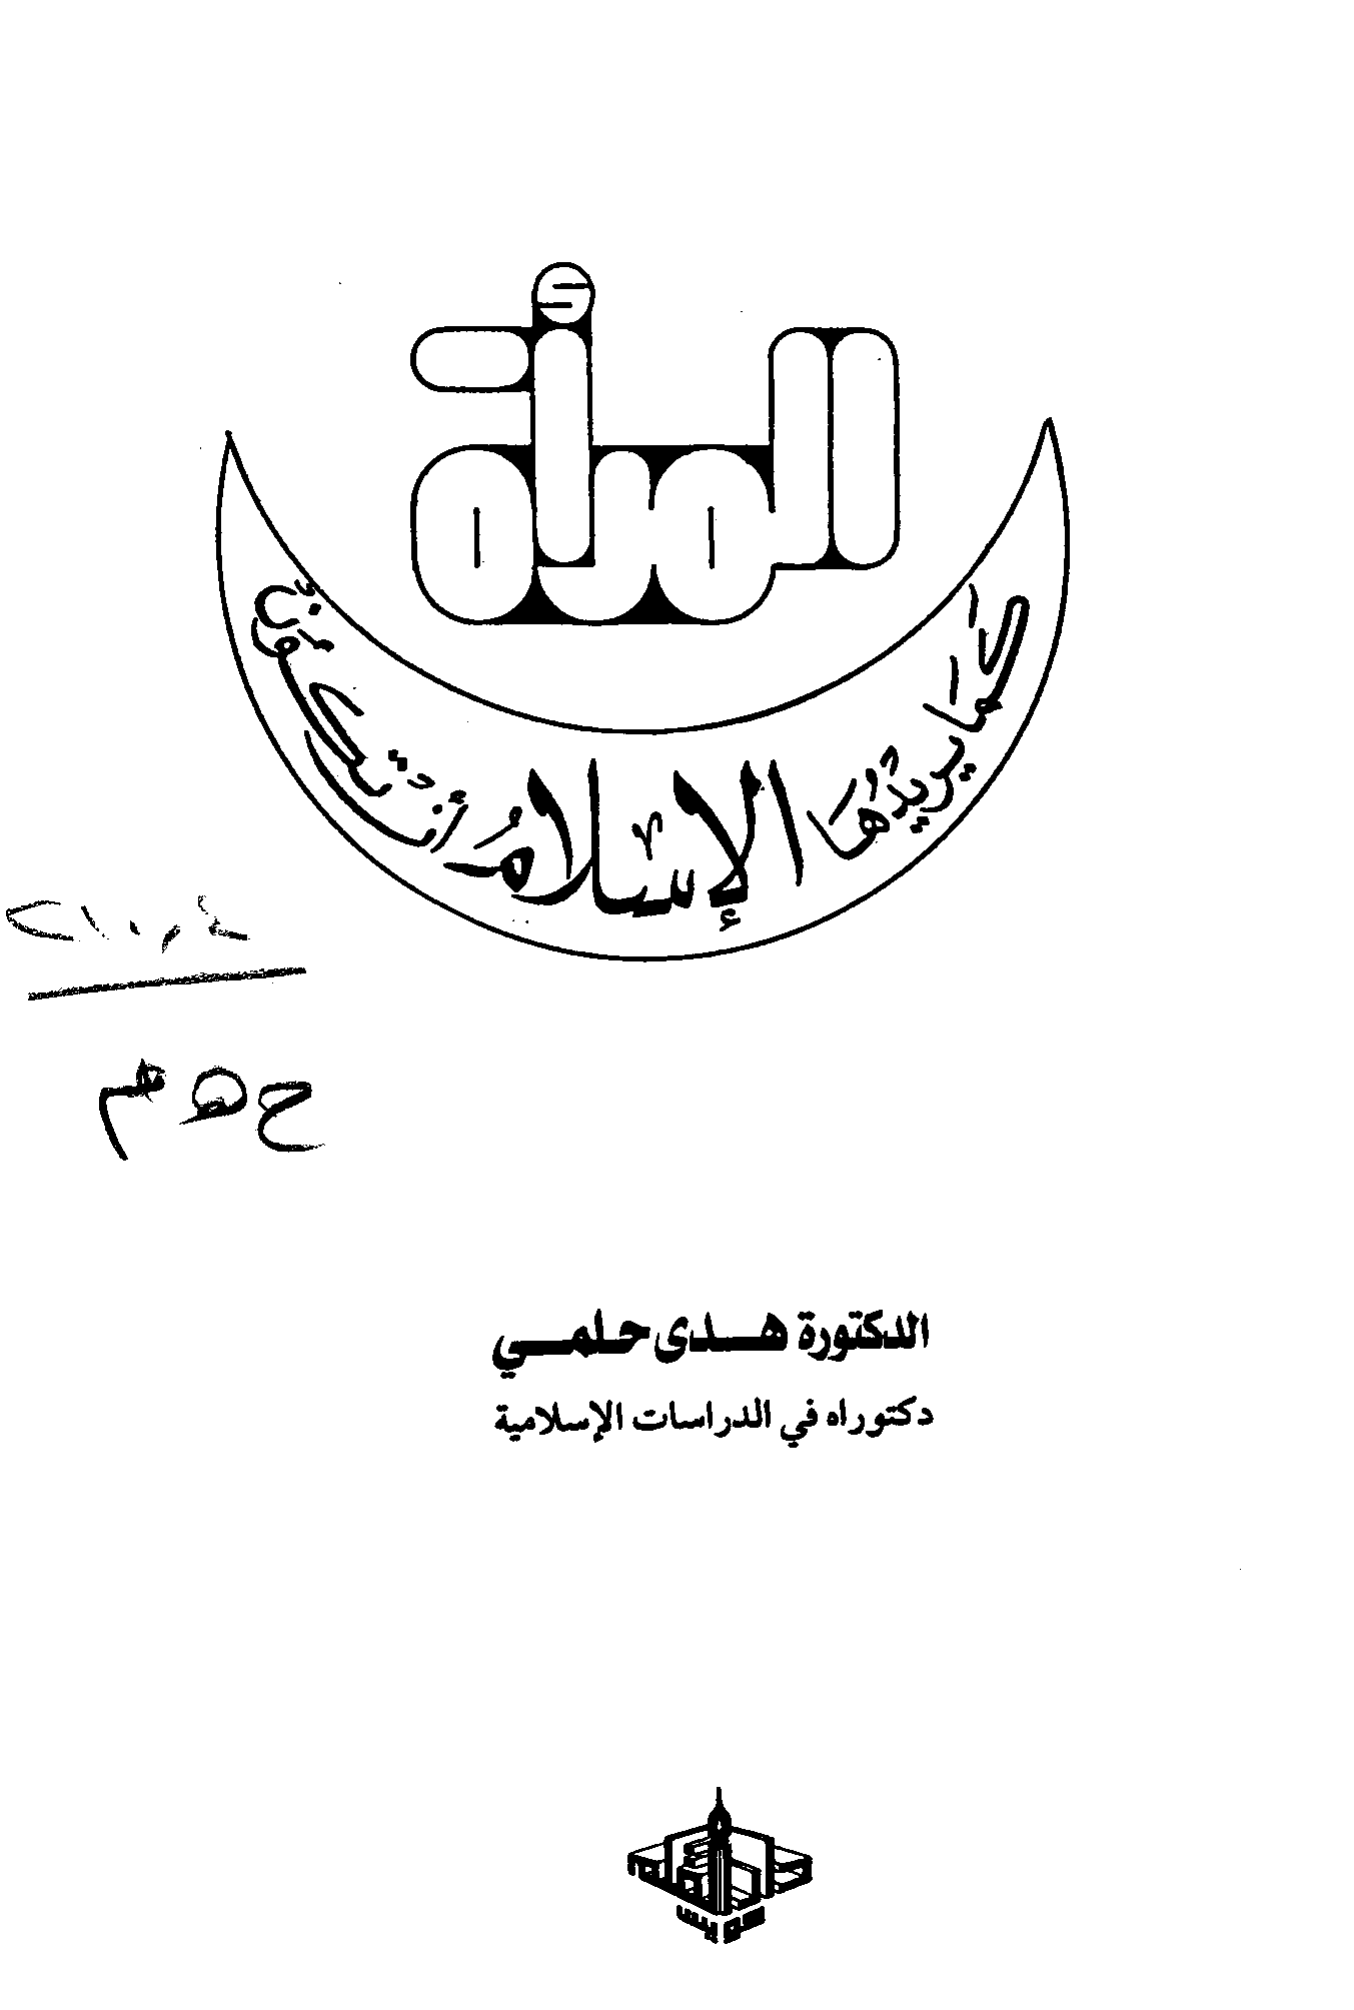 المرأة
كَمَا يريدُهَا الإسلامُ أن تكونَ
٢١٠٫٤
ح ه م
الدكتورة هدى حلمي
دكتوراه في الدراسات الإسلامية